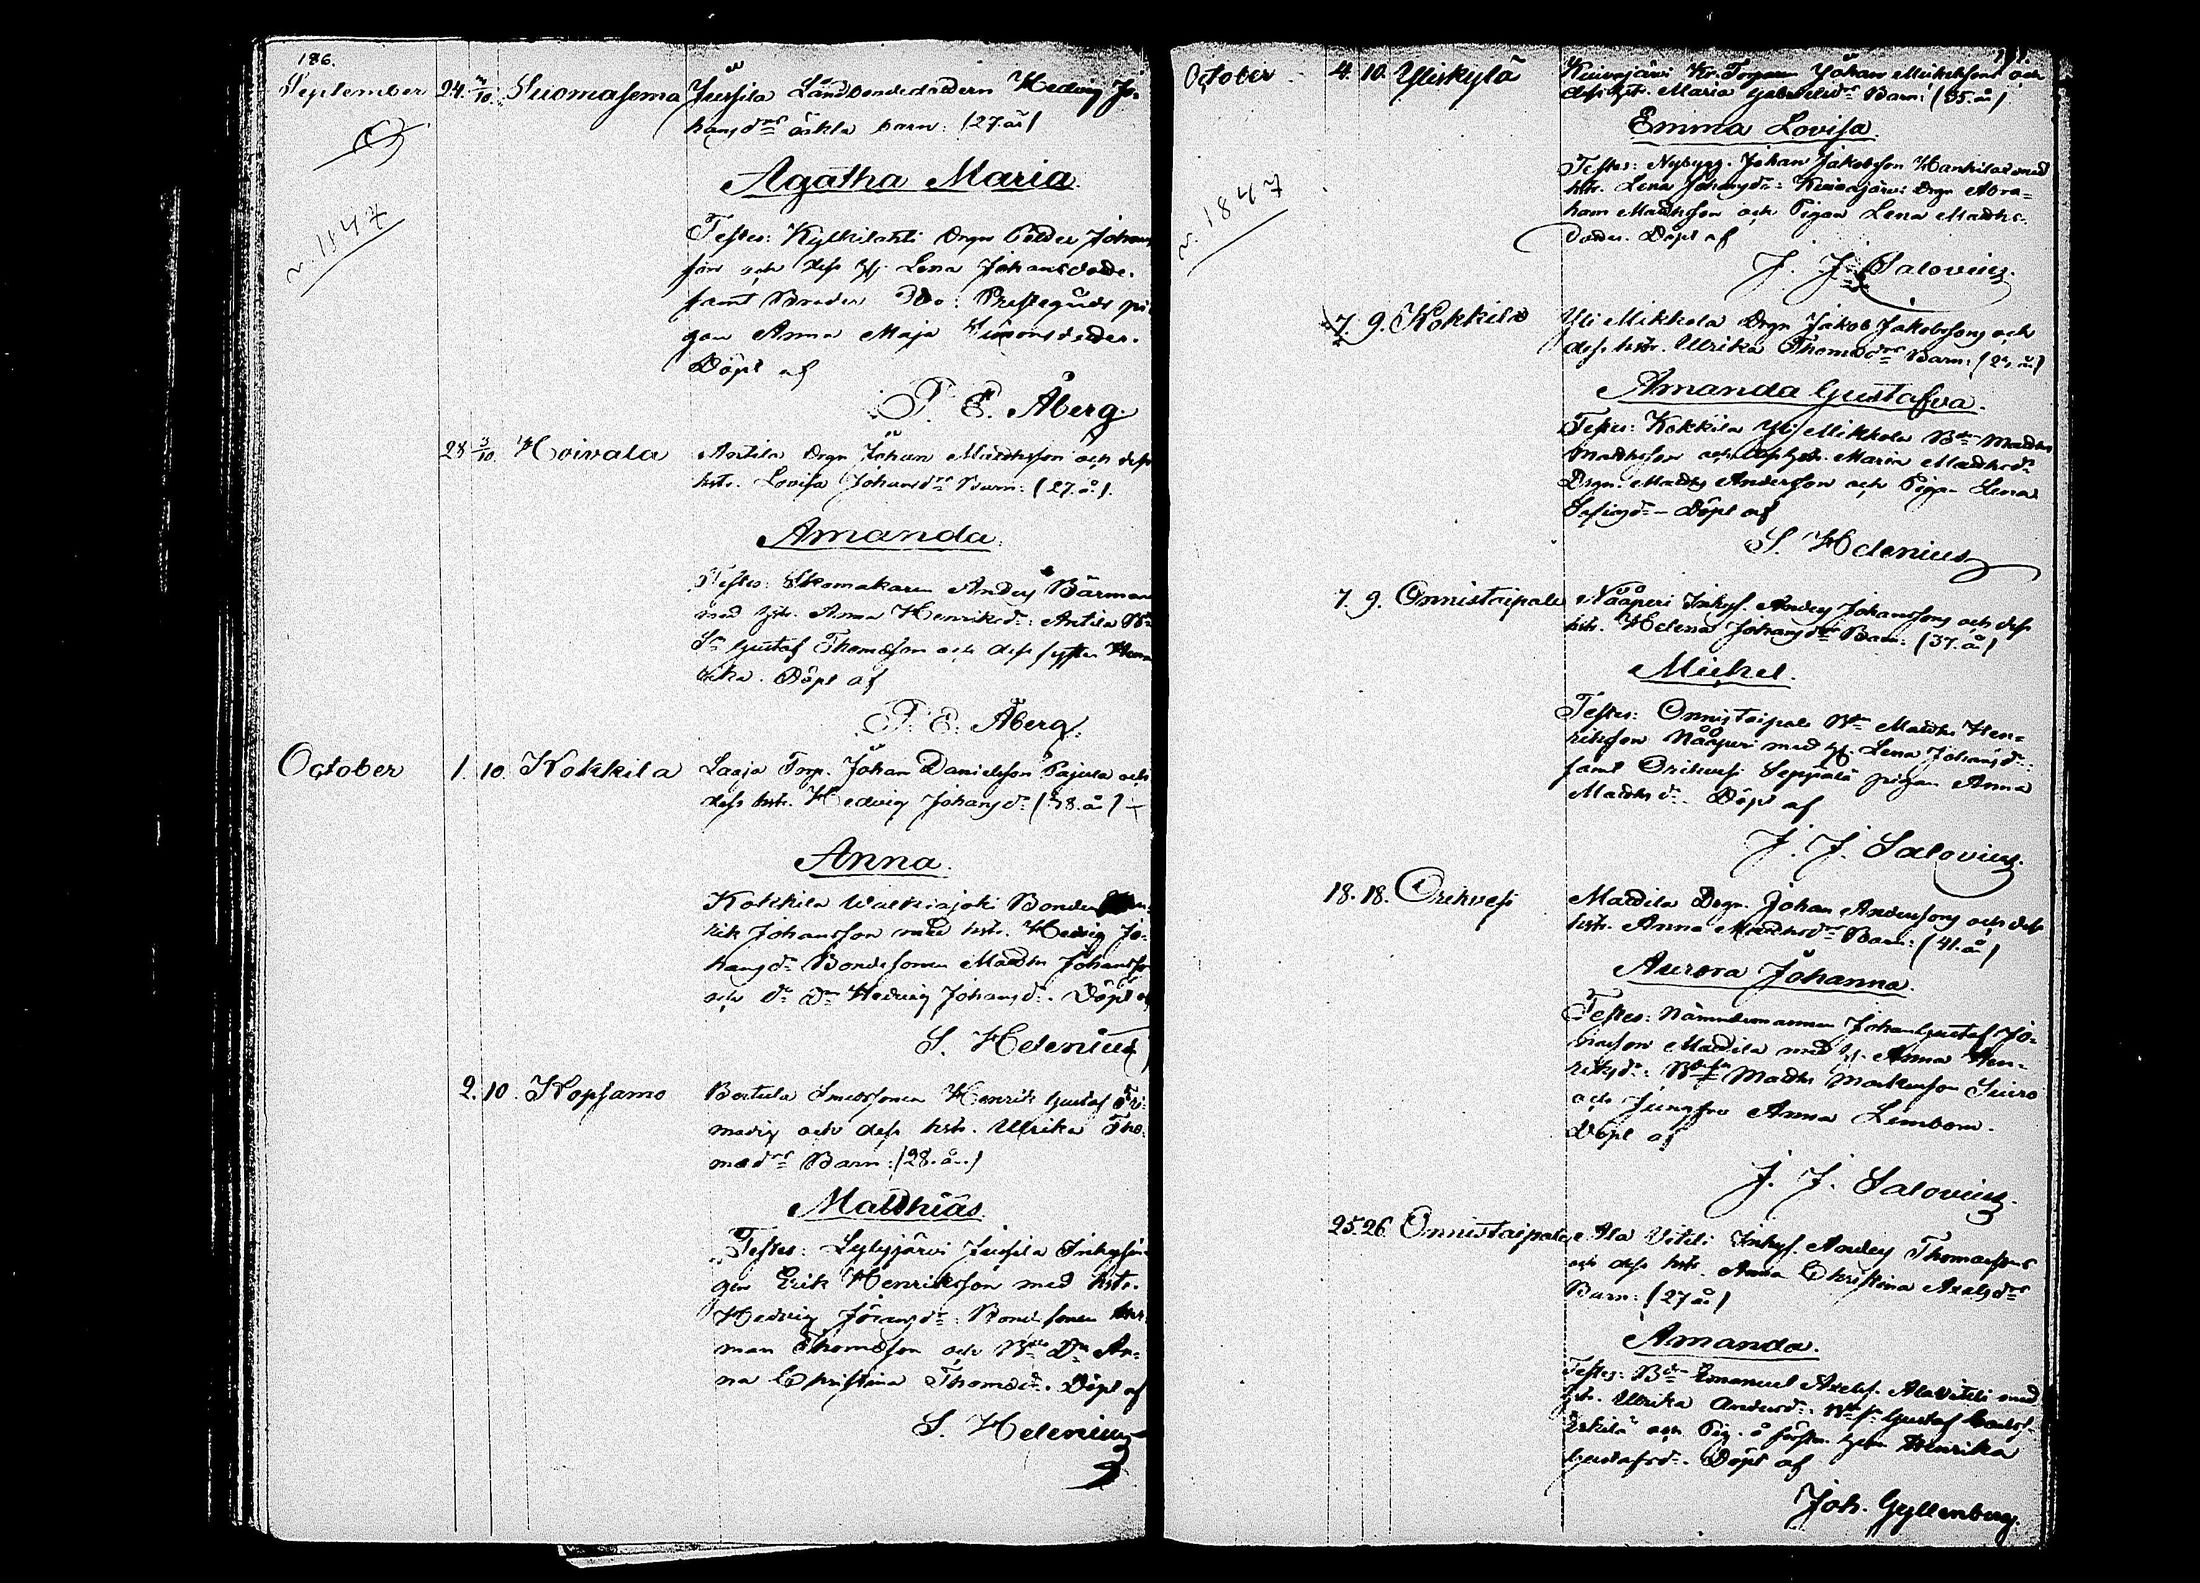 186.
September 24. 3/10. Suomasema Jussila Landbondedottern Hedvig Jo-
hansdrs oäkta barn: (27 år)
Agatha Maria.
v. 1847
Testes: Kylkilahti Drgn Petter Johans
son och dess hj. Lena Johansdotter
samt Broder Do: Prestegårds pi
gan Anna Maja Simonsdotter.
Döpt af
P. E. Åberg
28 3/10. Hoivala Antila Drgn Johan Matthsson och dess
hstr. Lovisa Johansdrs Barn: (27. år).
Amanda.
Testes: Skomakaren Anders Bärman
med hstr. Anna Henriksdr: Antila Bd
Sn Gustaf Thomasson och dess syster Hen
rika. Döpt af
P. E. Åberg.
October 1. 10. Kokkila Laaja Torp. Johan Danielsson Pajula och
dess hstr. Hedvig Johansdr (38. år)
Anna.
Kokkila Walkiajoki Bonden Hen-
rik Johansson med hstr. Hedvig Jo-
hansdr Bondesonen Matths Johansson
och dr Dr Hedvig Johansdr. Döpt af
S. Helenius
2. 10. Kopsamo Smedssonen Henrik Gustaf
och dess hstr. Ulrika Tho-
masdrs Barn: (28. år.)
Matthias.
Testes: Lylyjärvi Jussila Inhysin-
gen Erik Henriksson med hstr.
Hedvig Jöransdr: Bondesonen Her
man Thomasson och Bde Dn An-
na Christina Thomasdr. Döpt af
S. Helenius
October 4. 10. Yliskylä Kuivajärvi Kr. Torparen Johan Michelsson och
dess hstr. Maria Gabrielsdrs Barn: (35. år)
Emma Lovisa.
v. 1847
Testes: Nybygg. Johan Jakobsson Hankila med
hstr. Lena Johansdr: Kuivajärvi Drgn Abra-
ham Matthsson och Pigan Lena Matths-
dotter. Döpt af
J. J. Salovius.
7. 9. Kokkila Yli Mikkola Drgn Jakob Jakobssons och
dess hstr. Ulrika Thomasdrs Barn: år)
Amanda Gustafva.
Testes: Kokkila Yli Mikkola Bdn Matths
Matthsson och hstr. Maria Matthsdr
Drgn. Matths Andersson och Pigan Lena
Döpt af
S. Helenius
7. 9. Onnistaipale Nååperi Inhys. Anders Johanssons och dess
hstr. Helena Johansdrs Barn: (37. år)
Michel.
Testes: Onnistaipale Bdn Matths Hen-
riksson Nååperi med hj. Lena Johansdr:
samt Orihvesi Seppälä pigan Anna
Matthsdr. Döpt af
J. J. Salovius.
18. 18. Orihvesi Mattila Drgn. Johan Anderssons och dess
hstr. Anna Matthsdrs Barn: (41. år)
Aurora Johanna.
Testes: Nämndemannen Johan Gustaf Jo-
hansson Mattila med hj. Anna Hen-
riksdr: Matths Markusson Suiro
och Jungfru Anna Lembom.
Döpt af
J. J. Salovius.
25. 26. Onnistaipale Ala Vitili Inhys. Anders Thomassons
och dess hstr. Anna Christina Axelsdrs
Barn: (27 år)
Amanda.
Testes: Bdn Emanuel Axelss. Ala Vitili med
hstr. Ulrika Andersdr: Gustaf
Erkilä och Pig. å Henrika
Gustafsdr. Döpt af
Joh. Gyllenberg.